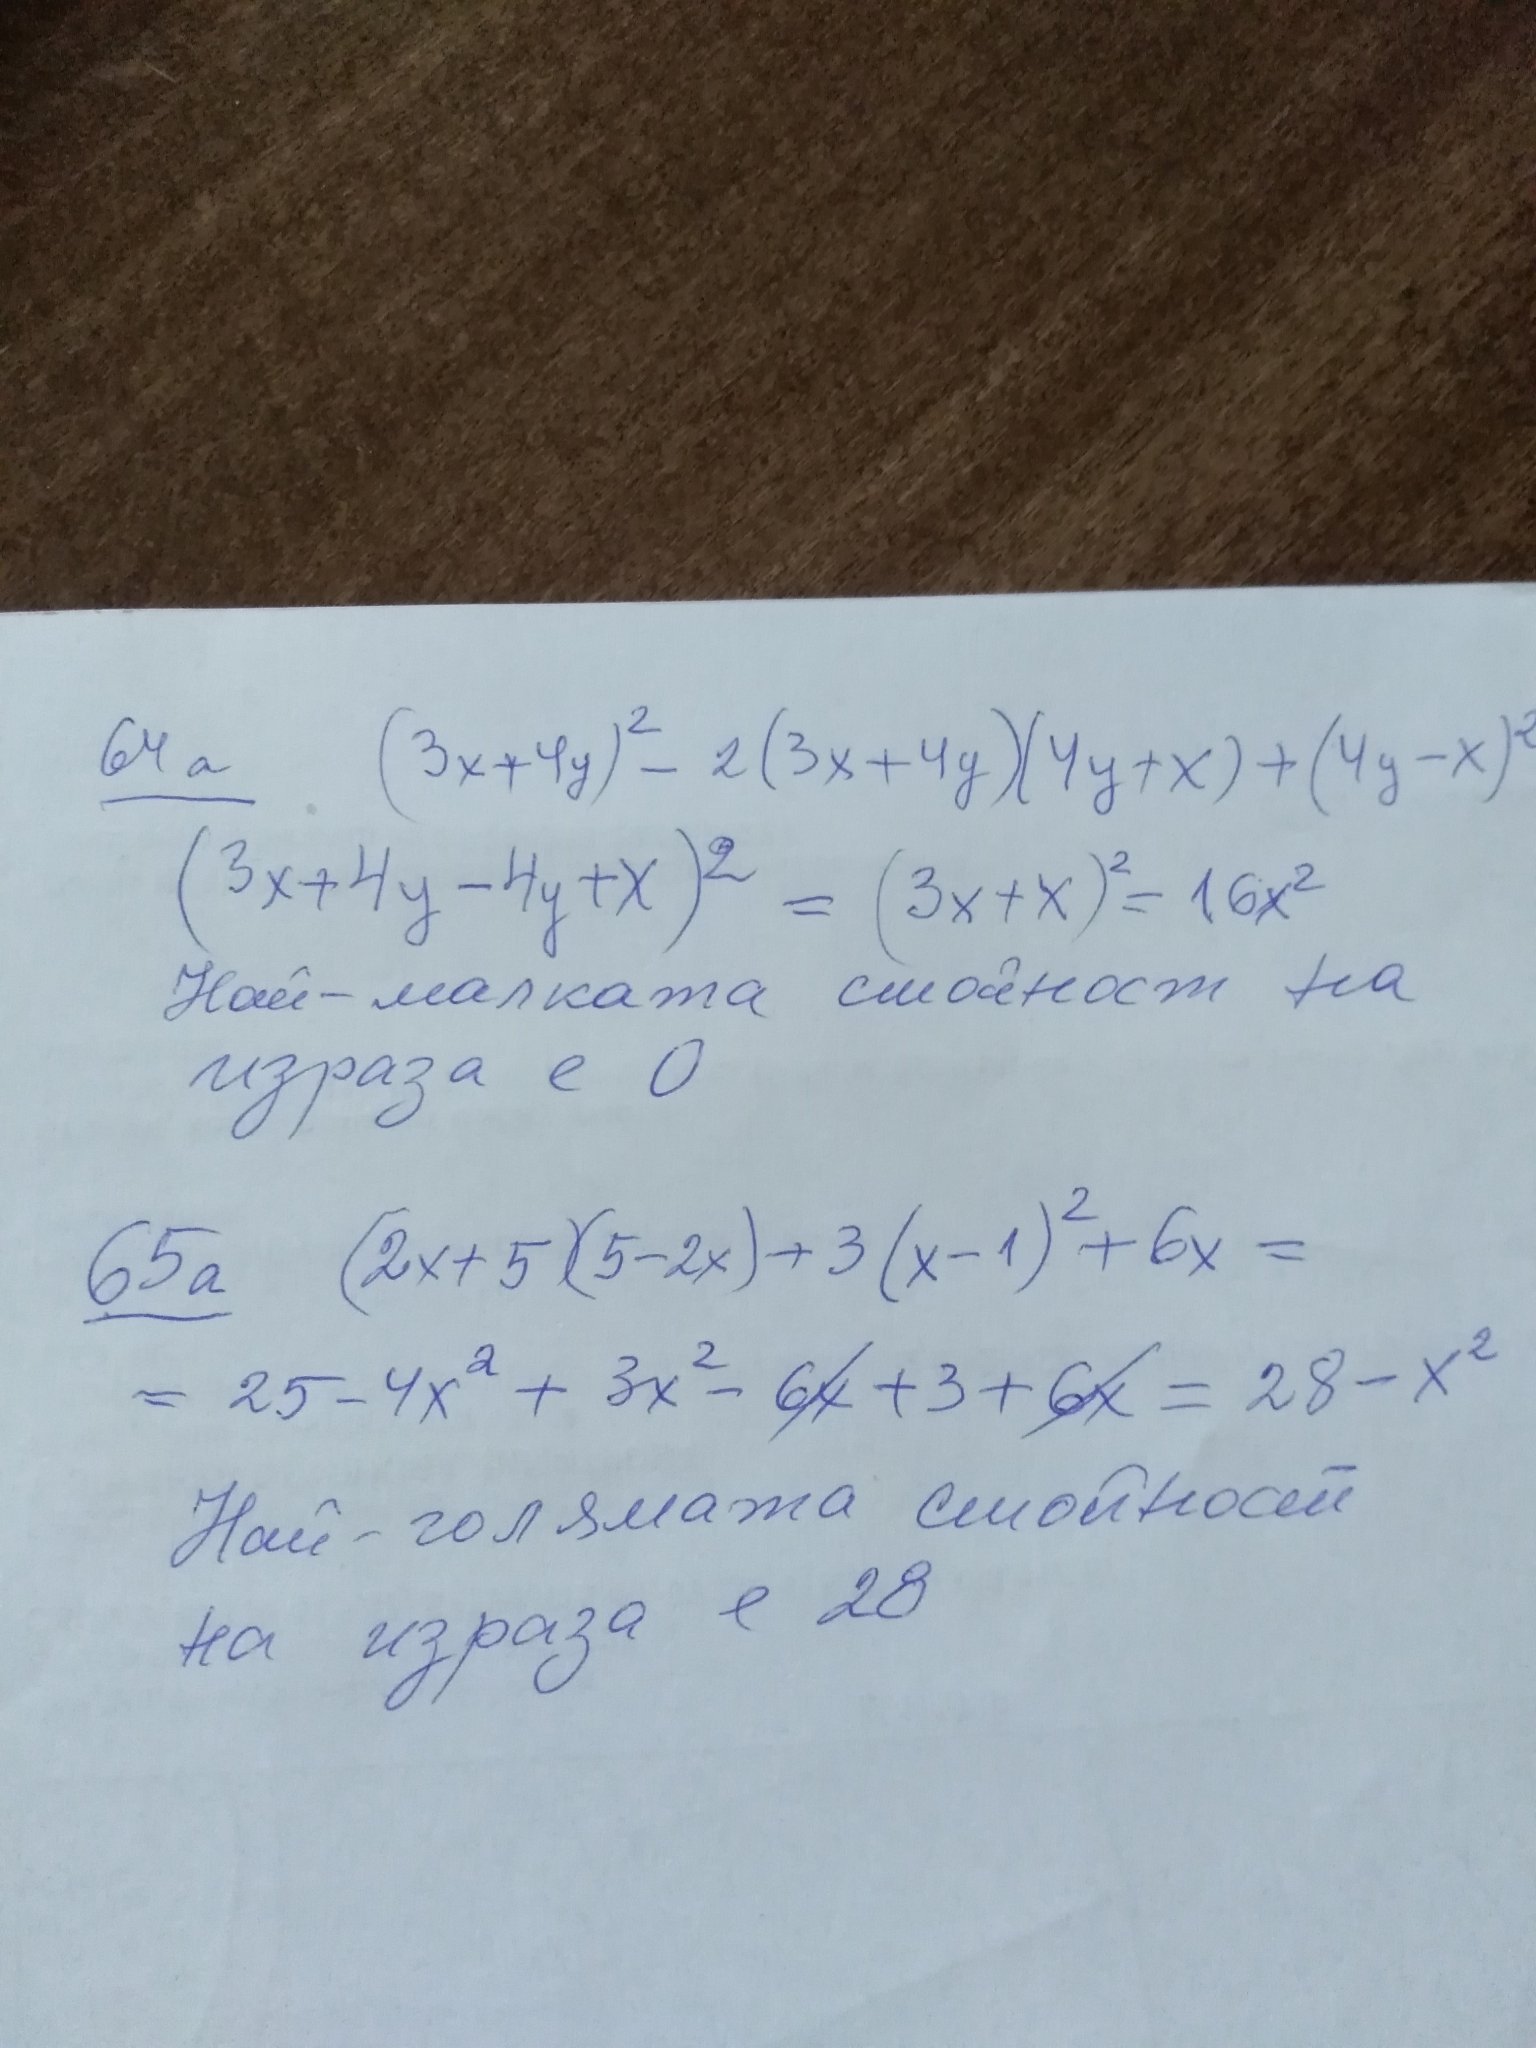 64а (3x+4y)² - 2(3x+4y)(4y+x)+(4y-x)²
(3x+4y-4y+x)² = (3x+x)² = 16x²
Най-малката стойност на
израза е 0
65а (2x+5)(5-2x)+3(x-1)²+6x=
= 25-4x²+3x²-6x+3+6x = 28-x²
Най-голямата стойност
на израза е 28